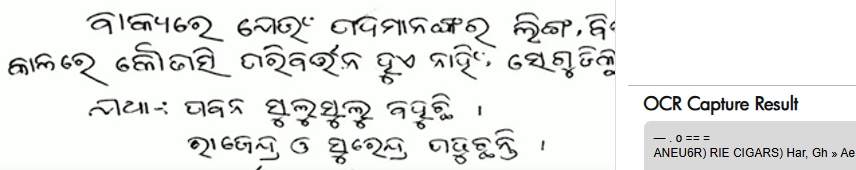 ବାକ୍ୟରେ ଯେଉଁ ପଦମାନଙ୍କର ଲିଙ୍ଗ, ବି
କାଳରେ କୌଣସି ପରିବର୍ତ୍ତନ ହୁଏ ନାହିଁ, ସେଗୁଡିକୁ
ଯଥା:- ପବନ ସୁଲୁସୁଲୁ ବହୁଛି ।
ରାଜେନ୍ଦ୍ର ଓ ସୁରେନ୍ଦ୍ର ପଢୁଛନ୍ତି ।
OCR Capture Result
— . o == =
ANEU6R) RIE CIGARS) Har, Gh » Ae